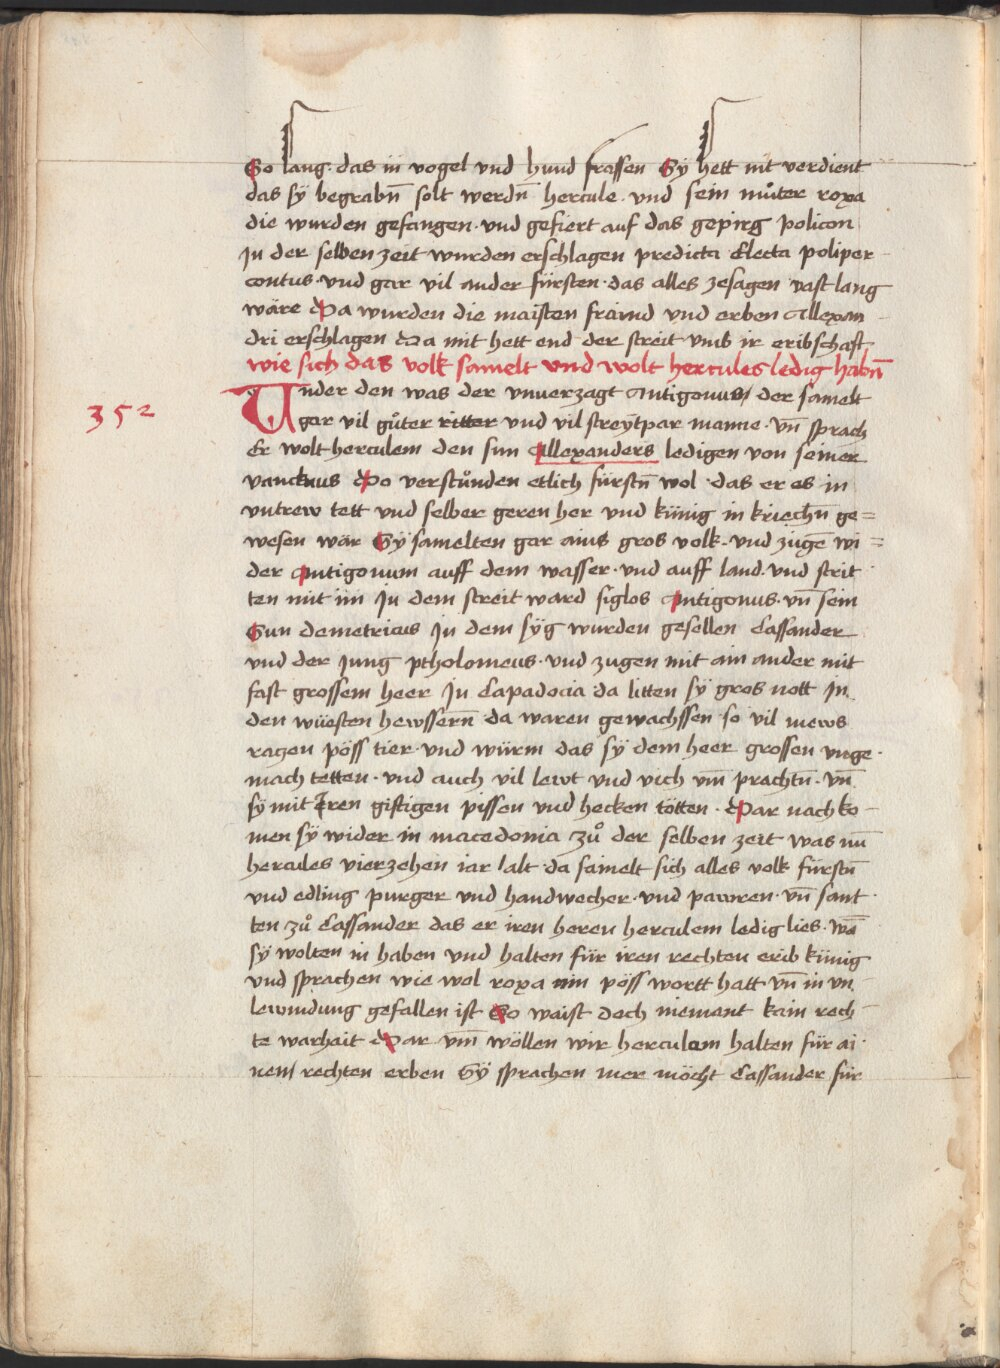 So lang · das in vogel vnd hund frassen Sÿ hett nit verdient
das sÿ begrabn̄ solt werdn̄ hercule · vnd sein můter roxa
die wurden gefangen · vnd gefiert auf das gepirg policon
In der selben zeit wurden erschlagen predicta Electa poliper
contus · vnd gar vil ander fürsten · das alles zesagen vast lang
wäre Da wurden die maisten fraind vnd erben Allexan
dri erschlagen Da mit hett end der streit vmb ir eribschaft
wie sich das volk samelt vnd wolt hercules ledig habn̄
352
Under den was der vnuerzagt Antigonus / der samelt
gar vil gůter ritter vnd vil streÿtpar manne · vn̄ sprach
Er wolt herculem den sun Allexanders ledigen von seiner
vancknus Do verstůnden etlich fürstn̄ wol · das er es in
vntrew tett vnd selber geren her vnd künig in kriechn̄ ge=
wesen wär Sÿ samelten gar ains gros volk · vnd zugē wi=
der Antigonum auff dem wasser · vnd auff land · vnd strit
ten mit im In dem streit ward siglos Antigonus · vn̄ sein
Sun demetricus In dem sÿg wurden gesellen Cassander
vnd der Jung ptholomeus · vnd zugen mit ain ander mit
fast grossem heer In Capadocia da litten sÿ gros nott In
den wüesten hewssern̄ da waren gewachssen · so vil mews
raczen pöss tier · vnd würm das sÿ dem heer grossen vnge
mach tetten · vnd auch vil lewt vnd vich vm̄ prachtn̄ · vn̄
sÿ mit Iren giftigen pissen vnd hecken totten · Dar nach ko
men sÿ wider in macedonia zů der selben zeit was nu
hercules vierzehen iar alt · da samelt sich alles volk fürstn̄
vnd edling purger vnd handwecher · vnd pawren · vn̄ sant
ten zů Cassander das er iren heren herculem ledig lies · wā
sÿ wolten in haben vnd halten für iren rechten erib künig
vnd sprachen wie wol roxa nin pöss wortt hatt vn̄ in vn
lewmdung gefallen ist So waist doch niemant kain rech
te warhait Dar vm̄ wöllen wir herculem halten für ai
nem / rechten erben Sÿ sprachen mer möcht Cassander für